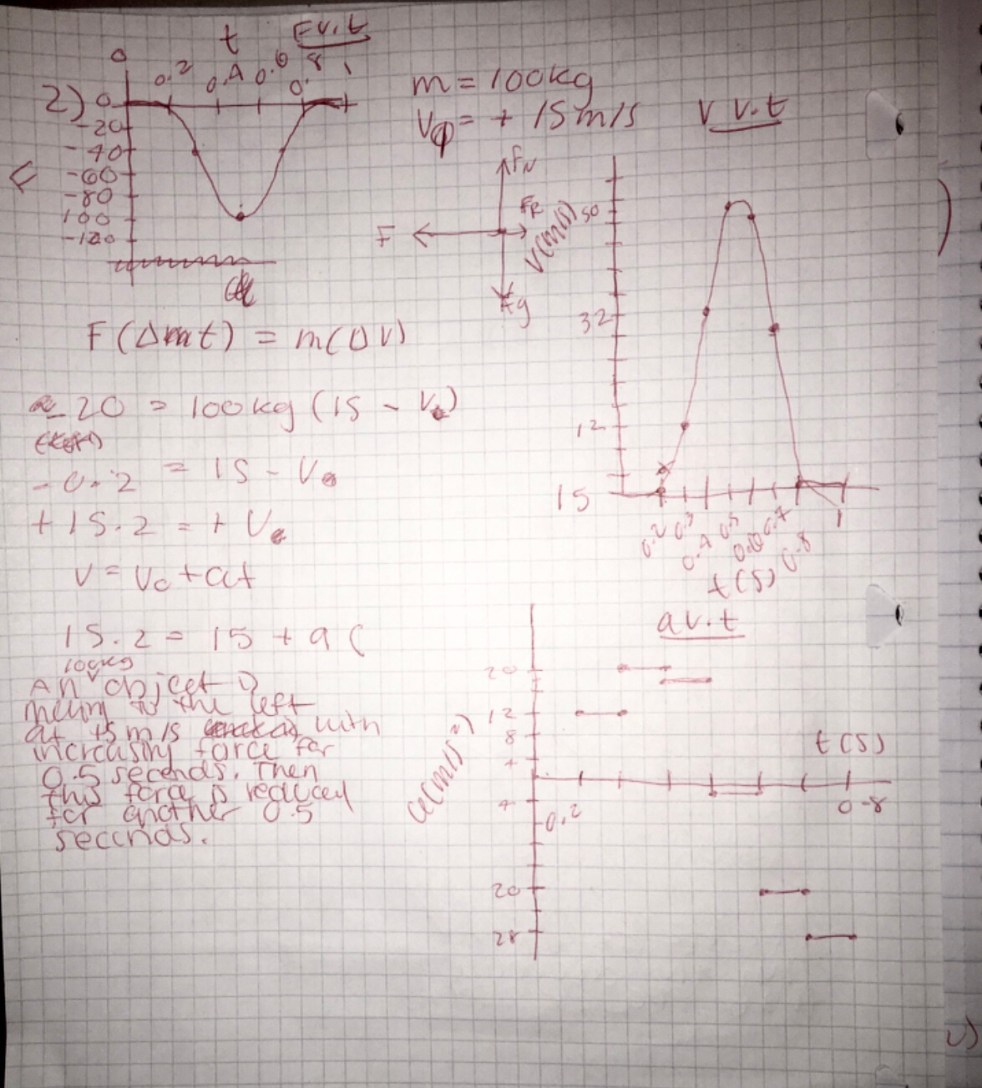 t F v.t
0 0.2 0.4 0.6 0.8 1
2) 0
-20
-40
-60
-80
100
-120
F
m = 100kg
= + 15m/s
FN
FR
F
Fg
F(Δ t) = m(ΔV)
-20 = 100kg (15 - V )
-0.2 = 15 - V
+15.2 = + V
V = V0 + at
15.2 = 15 + a (
100kg
An object
to the left
at 15m/s with
increasing force for
0.5 seconds. Then
this force is reduced
for another 0.5
seconds.
V v.t
V(m/s)
50
32
12
15
0.2 0.3 0.4 0.5 0.6 0.7 0.8 1
t(s)
a v.t
a(m/s²)
20
12
8
4
t(s)
4
0.2
0.8
20
28